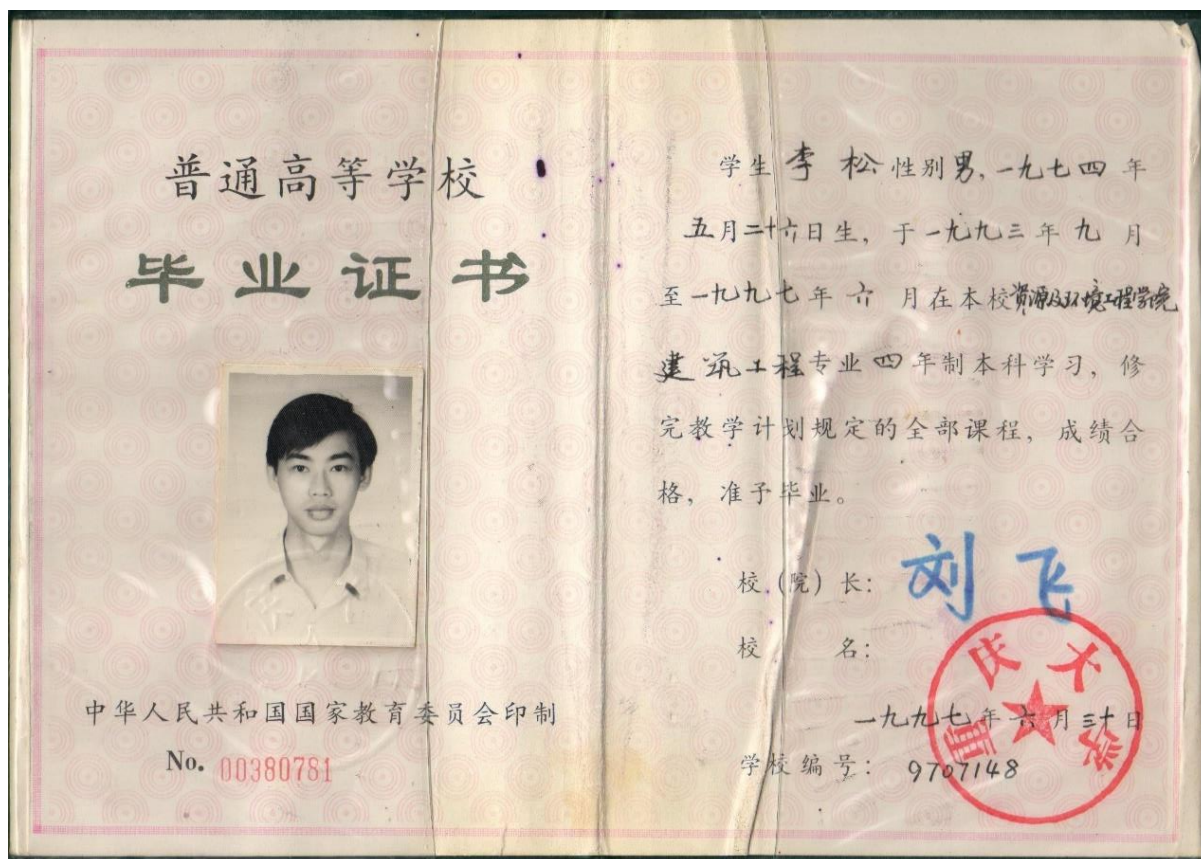 普通高等学校
毕业证书
中华人民共和国国家教育委员会印制
No. 00380781
学生李松性别男，一九七四年
五月二十六日生，于一九九三年九月
至一九九七年六月在本校资源及环境工程学院
建筑工程专业四年制本科学习，修
完教学计划规定的全部课程，成绩合
格，准予毕业。
校（院）长：刘飞
校名：
重庆大学
一九九七年六月三十日
学校编号：9707148